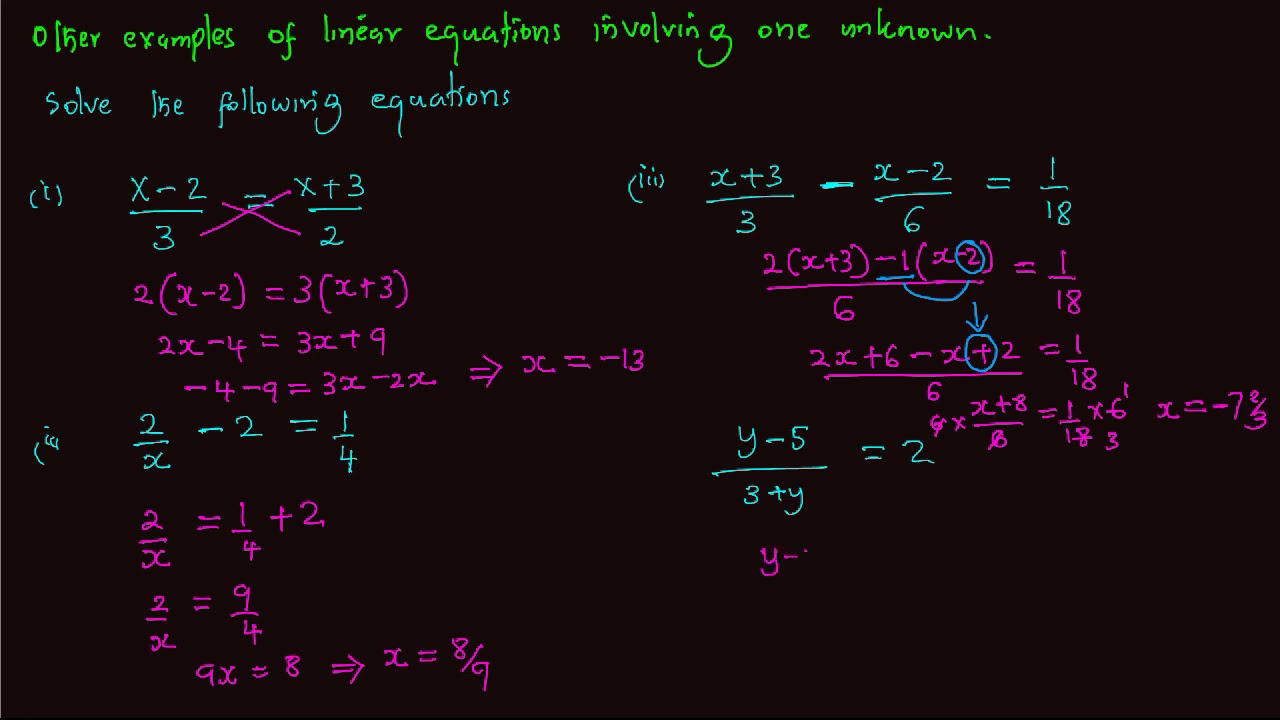 Other examples of linear equations involving one unknown.
Solve the following equations
(i) x-2/3 = x+3/2
2(x-2) = 3(x+3)
2x-4 = 3x+9
-4-9 = 3x-2x ⇒ x = -13
(ii 2/x - 2 = 1/4
2/x = 1/4 + 2
2/x = 9/4
9x = 8 ⇒ x = 8/9
(iii) x+3/3 - x-2/6 = 1/18
2(x+3)-1(x-2)/6 = 1/18
2x+6-x+2/6 = 1/18
6 × x+8/6 = 1/18 × 6 1 3 x = -7 2/3
y-5/3+y = 2
y-